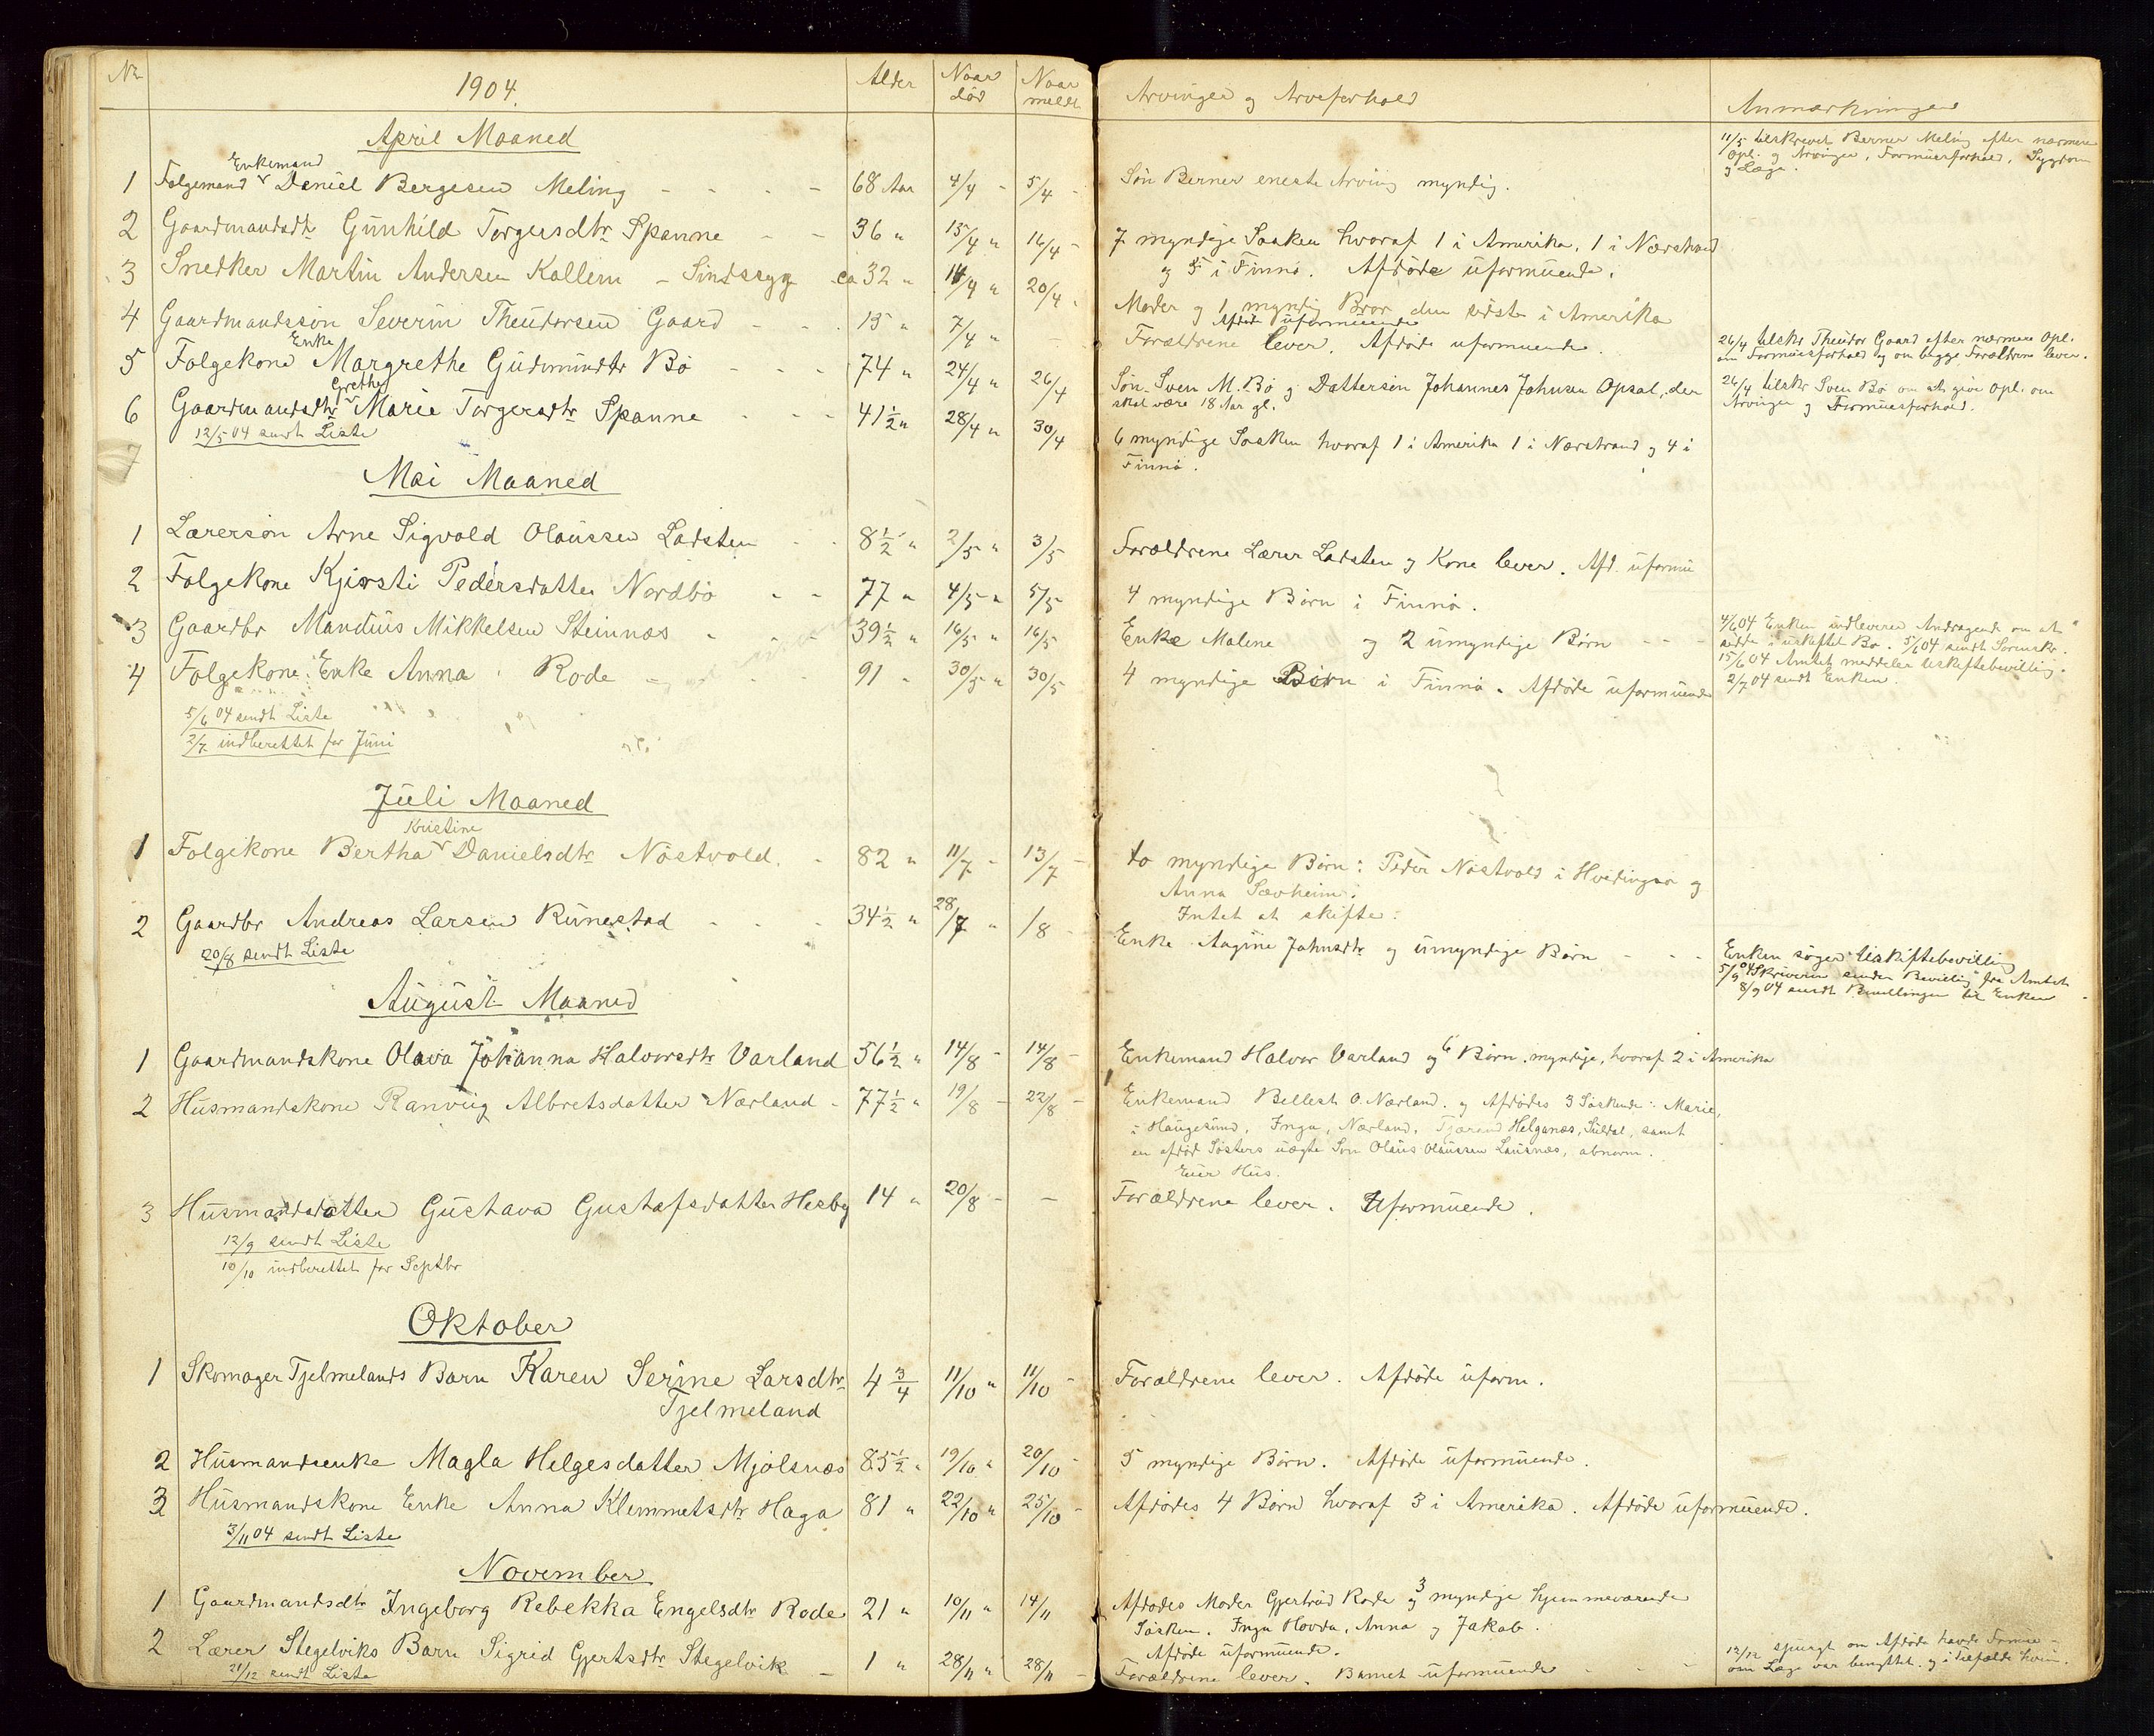 No
1904.
Alder
Naar død
Naar meldt
Arvinger og Arveforhold
Anmærkninger
April Maaned
Enkemand
1 Folgemand Daniel Bergesen Meling - - - - 68 Aar 4/4 - 5/4 - Søn Berner eneste Arving myndig.
11/5 tilskrevet Berner Meling efter nærmere
Opl. og Arvinger, Formuesforhold, Sygdom
og Læge.
2 Gaardmandsdtr Gunhild Torgersdtr Spanne - - 36 " 15/4 " 16/4 - 7 myndige Søsken hvoraf 1 i Amerika, 1 i Nærstrand
og 5 i Finnø. Afdøde uformuende.
3 Snedker Martin Andersen Kallem - Sindssyg ca 32 " 14/4 " 20/4 " Moder og 1 myndig Bror den sidste i Amerika
Afdøde uformuende
4 Gaardmandssøn Severin Theodorsen Gaard - - 15 " 7/4 " - Forældrene lever. Afdøde uformuende.
26/4 tilskr Theodor Gaard efter nærmere Opl.
om Formuesforhold og om begge Forældrene lever.
Enke
5 Folgekone Margrethe Gudmundtr Bø - - - 74 " 24/4 " 26/4 Søn Sven M. Bø og Dattersøn Johannes Johnsen Opsal, der
skal være 18 Aar gl.
26/4 tilskr Sven Bø om at give Opl. om
Arvinger og Formuesforhold.
Grethe
6 Gaardmandsdtr Marie Torgersdtr Spanne - - - 41½ " 28/4 " 30/4 6 myndige Søsken hvoraf 1 i Amerika 1 i Nærstrand og 4 i
Finnø.
12/5 04 sendt Liste
7
Mai Maaned
1 Lærersøn Arne Sigvald Olaussen Ladsten - - 8½ " 2/5 " 3/5 Forældrene Lærer Ladsten og Kone lever. Afd. uformu
2 Folgekone Kjirsti Pedersdatter Nordbø - - 77 " 4/5 " 5/5 4 myndige Børn i Finnø.
3 Gaardbr Mandius Mikkelsen Steinnæs - - - 39½ " 16/5 " 16/5 Enke Malene og 2 umyndige Børn - - -
4/6 04 Enken indleverer Andragende om at
sidde i uskiftet Bo. 5/6 04 sendt Sorenskr.
15/6 04 Amtet meddeler uskiftebevilling.
2/7 04 sendt Enken.
4 Folgekone Enke Anna Rode - - - 91 " 30/5 " 30/5 4 myndige Børn i Finnø. Afdøde uformuende
5/6 04 sendt Liste
2/7 indberettet for Juni
Juli Maaned
Kristine
1 Folgekone Bertha Danielsdtr Nøstvold. - 82 " 11/7 - 13/7 - to myndige Børn: Peder Nøstvold i Hvidingsø og
Anna Sævheim.
Intet at skifte.
2 Gaardbr Andreas Larsen Runestad - - - 34½ " 28/7 " 1/8 - Enke Aagine Johnsdtr og umyndige Børn - - -
20/8 sendt Liste
Enken søger uskiftebevilling
5/9 04 Skriveren sender Bevilling fra Amtet
8/9 04 sendt Bevillingen til Enken
August Maaned
1 Gaardmandskone Olava Johanna Halvorsdtr Varland 56½ " 14/8 - 14/8 - Enkemand Halvor Varland og 6 Børn myndige, hvoraf 2 i Amerika
2 Husmandskone Ranveig Albretsdatter Nærland - 77½ " 19/8 - 22/8 - Enkemand Bellest O. Nærland. og Afdødes 3 Søskende: Marie,
i Haugesund, Inga, Nærland, Helganæs, Suldal, samt
en afdød Søsters uægte Søn Olaus Olaussen Lausnæs, abnorm.
Eier Hus.
3 Husmandsdatter Gustava Gustafsdatter Hesby 14 " 20/8 - - Forældrene lever. Uformuende.
12/9 sendt Liste
10/10 indberettet for Septbr
Oktober
1 Skomager Tjelmelands Barn Karen Serine Larsdtr 4¾ 11/10 " 11/10 - Forældrene lever. Afdøde uform.
Tjelmeland
2 Husmandsenke Magla Helgesdatter Mjølsnæs 85½ " 19/10 " 20/10 - 5 myndige Børn. Afdøde uformuende.
3 Husmandskone Enke Anna Klemmetsdtr Haga 81 " 22/10 " 25/10 - Afdødes 4 Børn hvoraf 3 i Amerika. Afdøde uformuende.
3/11 04 sendt Liste
November
1 Gaardmandsdtr Ingeborg Rebekka Engelsdtr Rode 21 " 10/11 " 14/11 Afdødes Moder Gjertrud Rode og 3 myndige hjemmeværende
Søsken. Inga Hovda, Anna og Jakob.
Afdøde uformuende.
2 Lærer Stegelviks Barn Sigrid Gjertsdtr Stegelvik - 1 " 28/11 " 28/11 - Forældrene lever. Barnet uformuende - - -
12/12 spurgt om Afdøde havde Formue -
om Læge var benyttet og i Tilfælde hvem.
21/12 sendt Liste